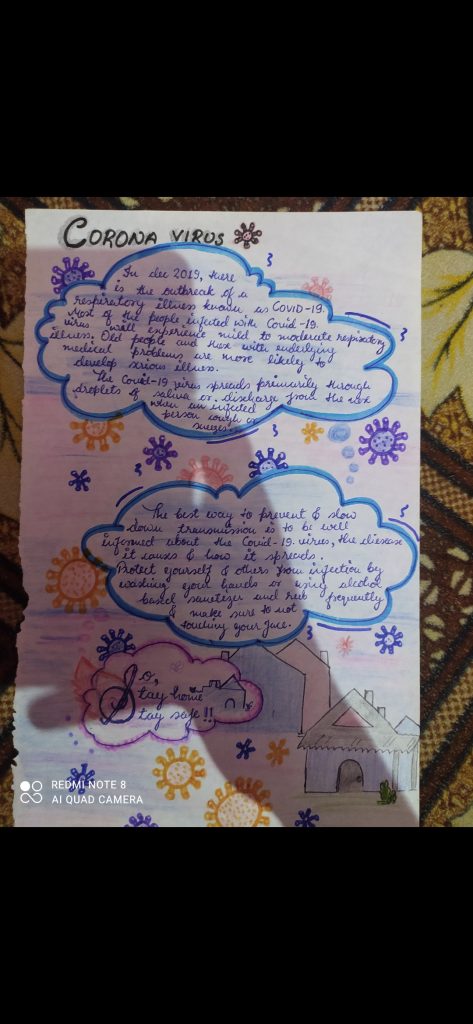 CORONA VIRUS
In dec 2019, there
is the outbreak of a
respiratory illness known as COVID-19.
Most of the people infected with Covid-19
virus will experience mild to moderate respiratory
illness. Old people and those with underlying
medical problems are more likely to
develop serious illness.
The Covid-19 virus spreads primarily through
droplets of saliva or discharge from the nose
when an infected
person cough or
sneezes.
The best way to prevent & slow
down transmission is to be well
informed about the Covid-19 virus, the disease
it causes & how it spreads.
Protect yourself & others from infection by
washing your hands or using alcohol
based sanitizer and rub frequently
& make sure to not
touching your face.
So,
Stay home
Stay safe!!
REDMI NOTE 8
AI QUAD CAMERA